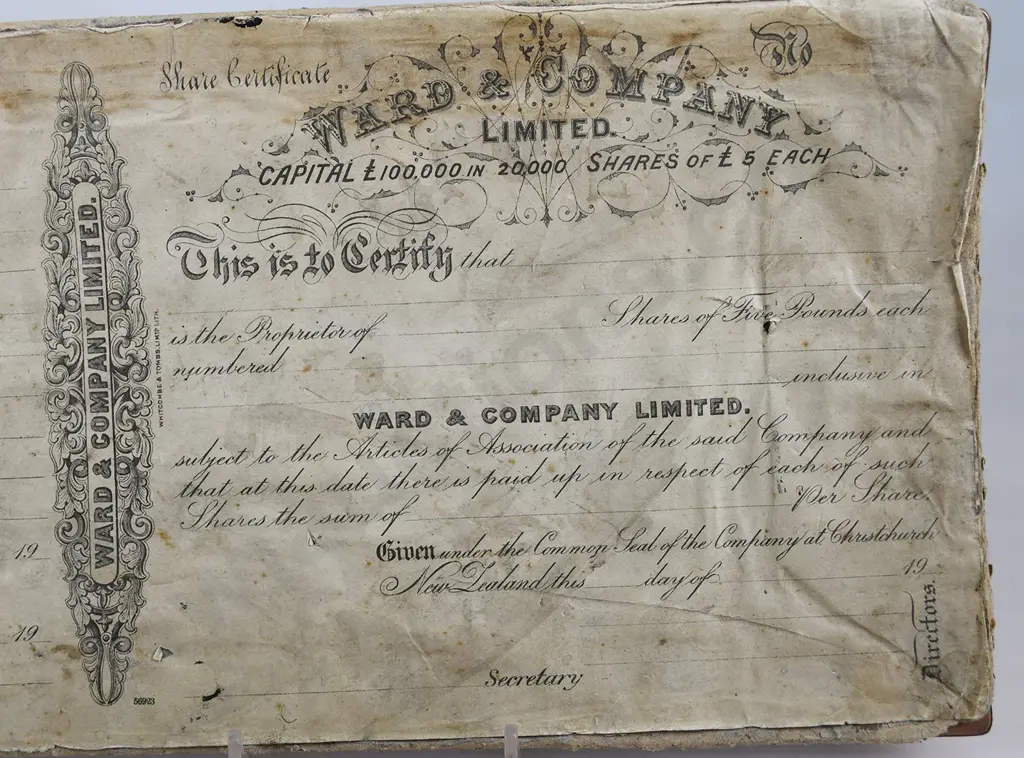 Share Certificate
No
WARD & COMPANY
LIMITED.
CAPITAL £100,000 IN 20,000 SHARES OF £5 EACH
This is to Certify that
is the Proprietor of Shares of Five Pounds each
numbered inclusive in
WARD & COMPANY LIMITED.
subject to the Articles of Association of the said Company and
that at this date there is paid up in respect of each of such
Shares the sum of Per Share.
Given under the Common Seal of the Company at Christchurch
New Zealand this day of 19
Directors.
Secretary
WARD & COMPANY LIMITED.
WHITCOMBE & TOMBS LIMTD LITH.
56923
19
19